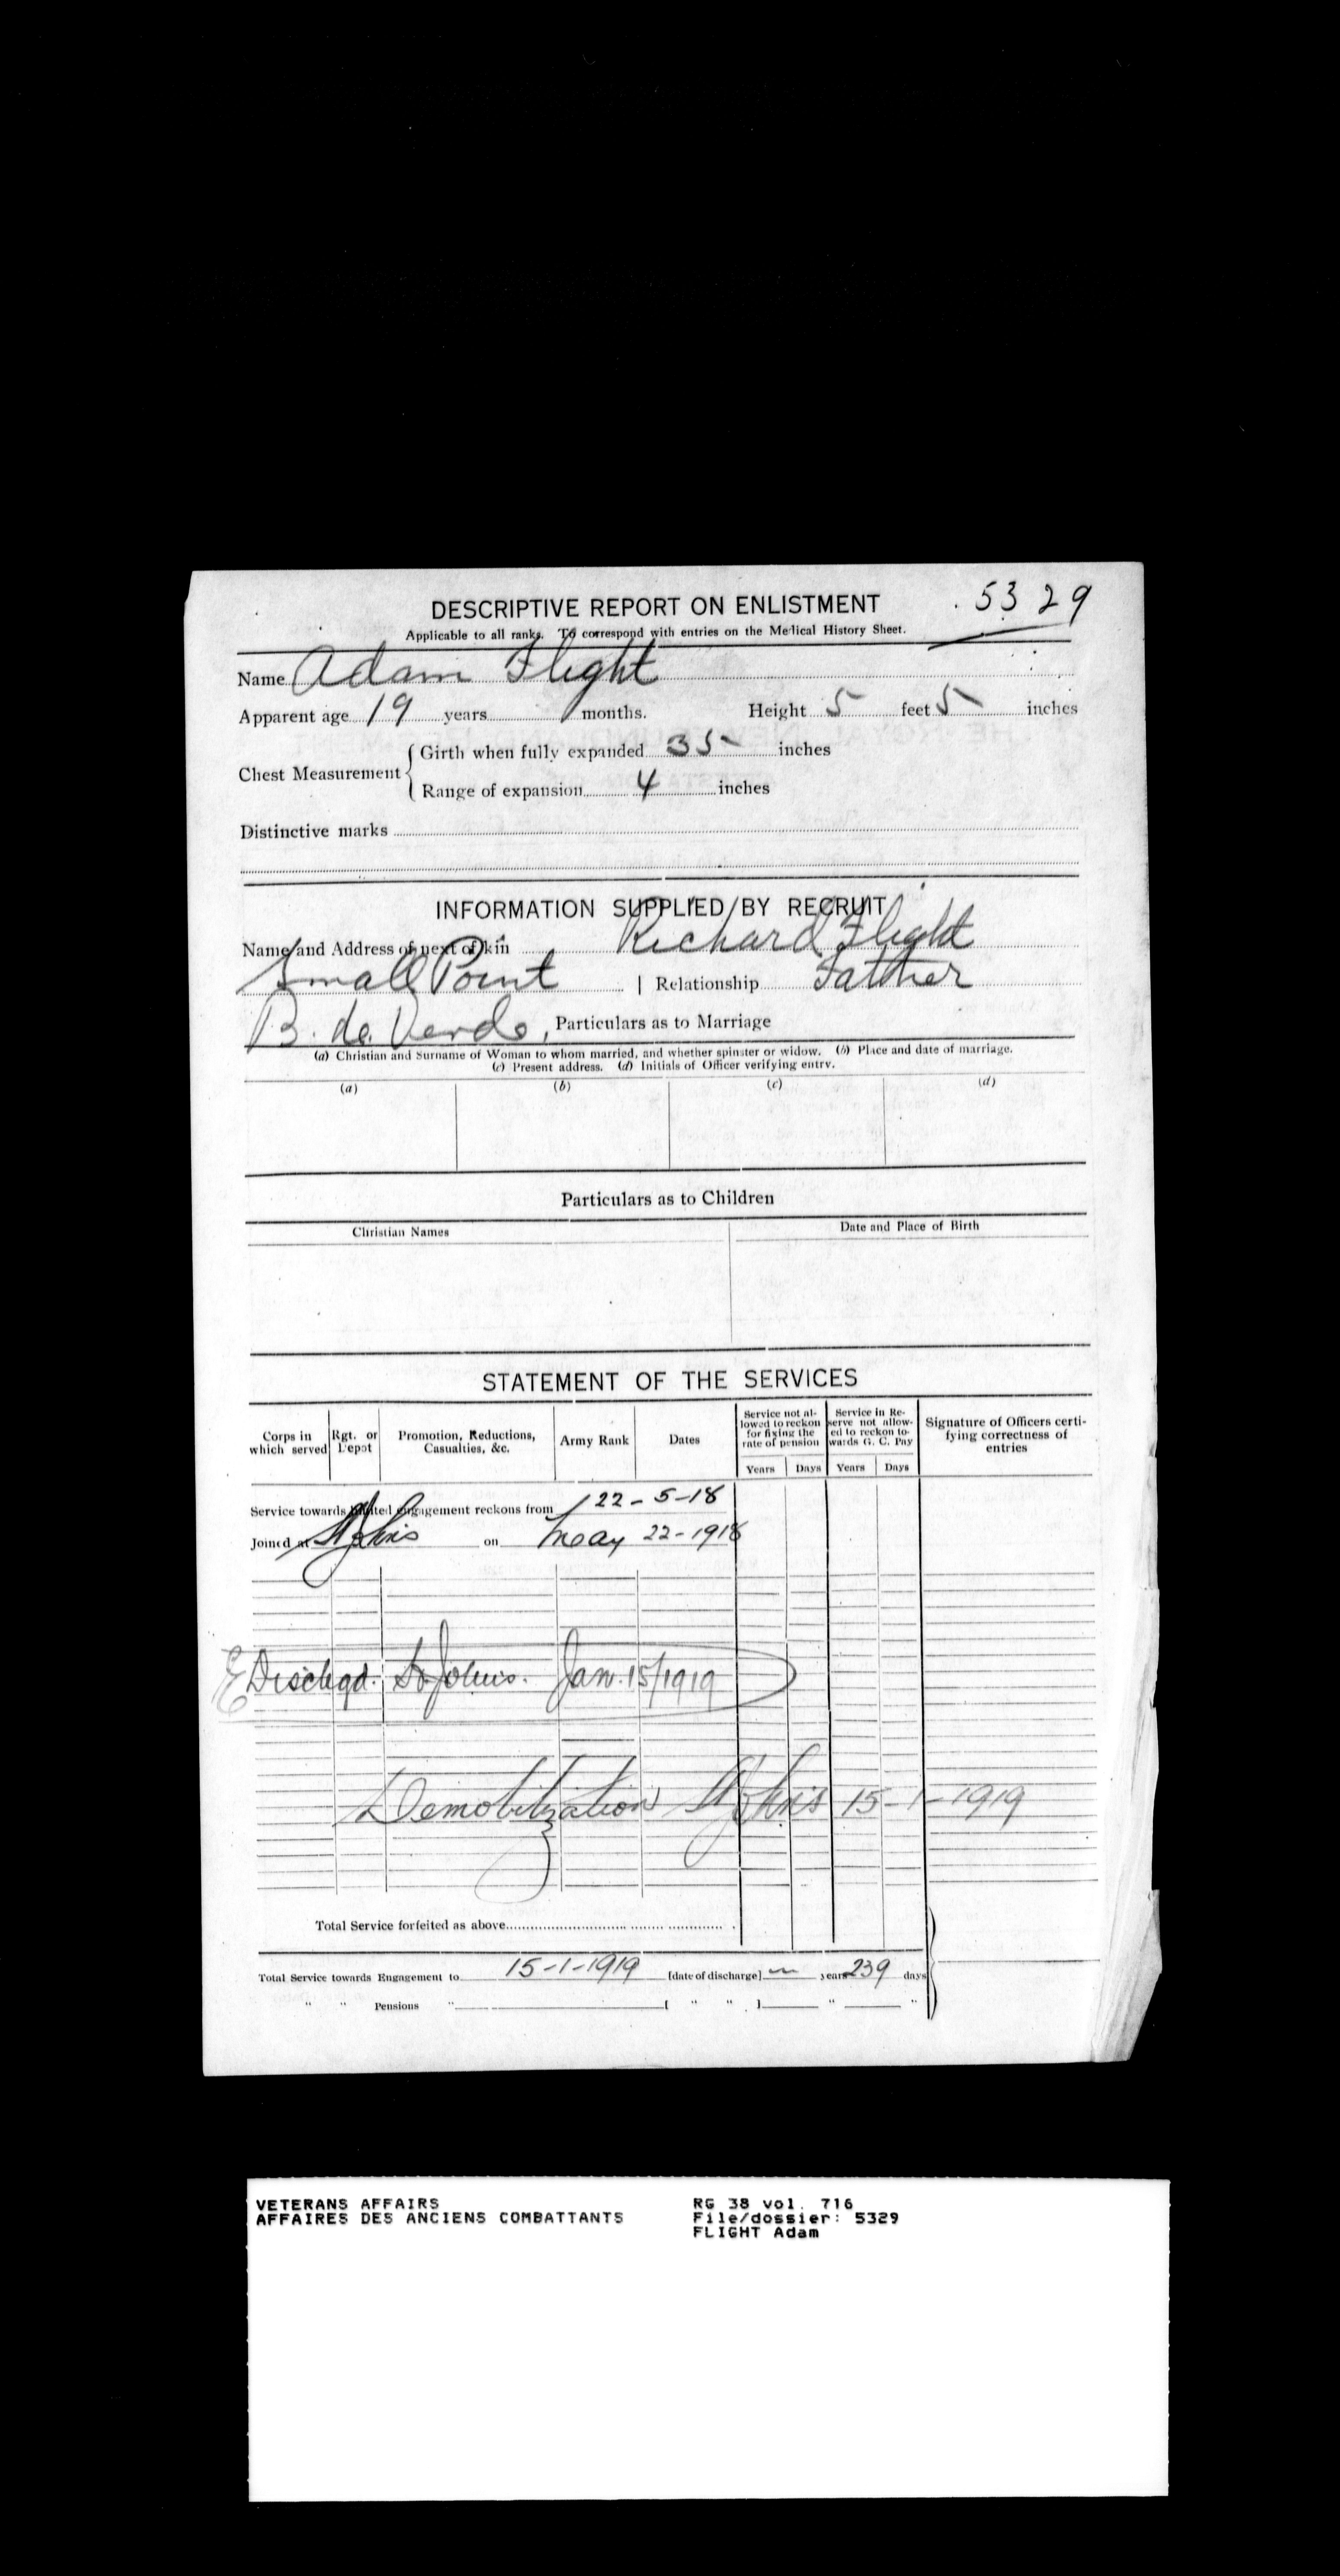 DESCRIPTIVE REPORT ON ENLISTMENT
5329
Applicable to all ranks. To correspond with entries on the Medical History Sheet.
Name Adam Flight
Apparent age 19 years months. Height 5 feet 5 inches
Chest Measurement { Girth when fully expanded 35 inches
Range of expansion 4 inches
Distinctive marks
INFORMATION SUPPLIED BY RECRUIT
Name and Address of next of kin Richard Flight
Small Point | Relationship Father
B. de Verde, Particulars as to Marriage
(a) Christian and Surname of Woman to whom married, and whether spinster or widow. (b) Place and date of marriage.
(c) Present address. (d) Initials of Officer verifying entry.
(a) (b) (c) (d)
Particulars as to Children
Christian Names Date and Place of Birth
STATEMENT OF THE SERVICES
Corps in which served Rgt. or Depot Promotion, Reductions, Casualties, &c. Army Rank Dates Service not allowed to reckon for fixing the rate of pension Service in Reserve not allowed to reckon towards G. C. Pay Signature of Officers certifying correctness of entries
Years Days Years Days
Service towards limited engagement reckons from 22-5-18
Joined at St Johns on May 22-1918
Dischgd. St. Johns. Jan. 15/1919
Demobilization St Johns 15-1-1919
Total Service forfeited as above
Total Service towards Engagement to 15-1-1919 [date of discharge] — years 239 days
" " Pensions " [ " " ] " "
VETERANS AFFAIRS RG 38 vol. 716
AFFAIRES DES ANCIENS COMBATTANTS File/dossier: 5329
FLIGHT Adam